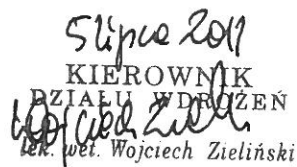 5 lipca 2011
KIEROWNIK
DZIAŁU WDROŻEŃ
Wojciech Zieliński
lek. wet. Wojciech Zieliński